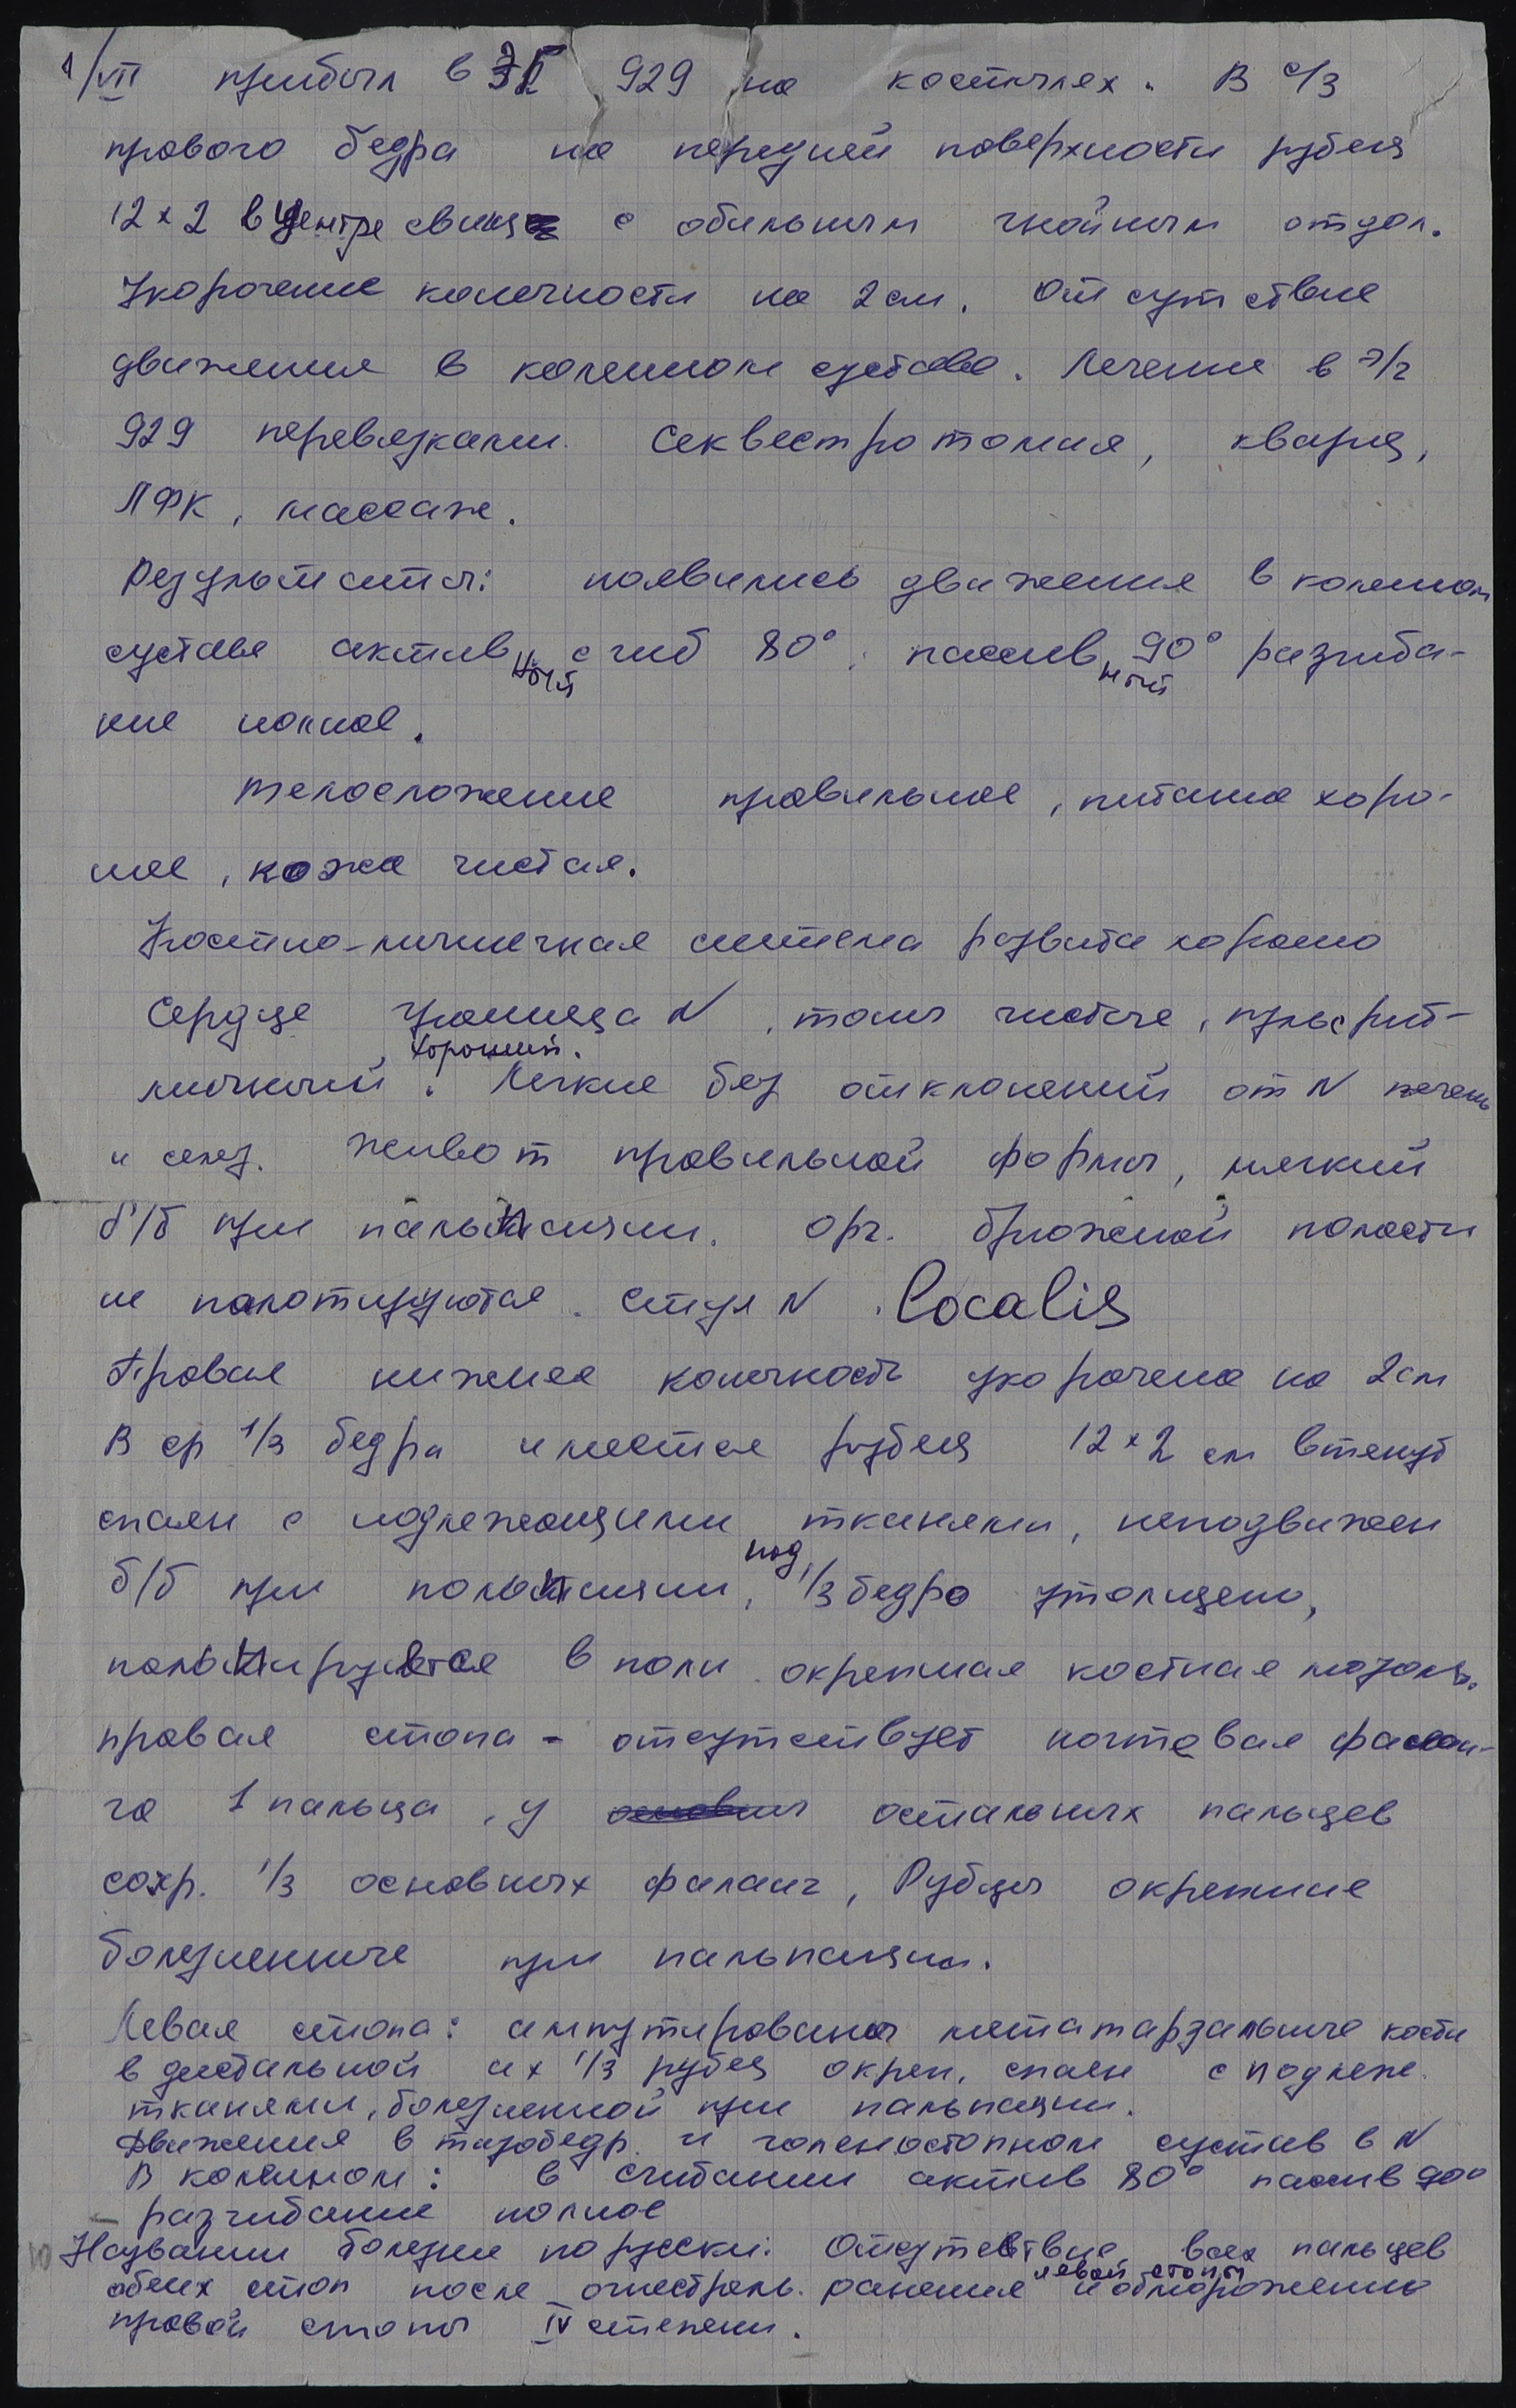 1/VII прибыл в ЭГ 929 на костылях. В с/3
правого бедра на передней поверхности рубец
12×2 в центре свищ с обильным гнойным отдел.
Укорочение конечности на 2 см. Отсутствие
движения в коленном суставе. Лечение в э/г
929 перевязками. Секвестротомия, кварц,
ЛФК, массаж.
Результаты: появились движения в коленном
суставе активный сгиб 80°, пассивный 90° разгиба-
ние полное.
Телосложение правильное, питание хоро-
шее, кожа чистая.
Костно-мышечная система развита хорошо
Сердце граница N, тоны чистые, пульс рит-
мичный, хороший. Легкие без отклонений от N печень
и селез. Живот правильной формы, мягкий
б/б при пальпации. Орг. брюжной полости
не палотируются. Стул N. Localis
Правая нижнее конечность укорочена на 2 см
В ср 1/3 бедра имеется рубец 12×2 см втянут
спаян с подлежащими тканями, неподвижен
б/б при пальпации, под 1/3 бедро утолщено,
пальпируется в поли окрепшая костная мозоль.
правая стопа - отсутствует ногтевая фалан-
га 1 пальца, у остальных пальцев
сохр. 1/3 основных фаланг, Рубцы окрепшие
болезненные при пальпации.
Левая стопа: ампутированы метатарзальные кости
в дистальной их 1/3 рубец окреп, спаен с подлеж.
тканями, болезненной при пальпации.
Движения в тазобедр. и голеностопном сустав в N
В коленном: в сгибании актив 80° пассив 90°
– разгибание полное
Названии болезни по русски: Отсутевтвие всех пальцев
обеих стоп после огнестрель. ранения левой стопы и обморожению
правой стопы IV степени.